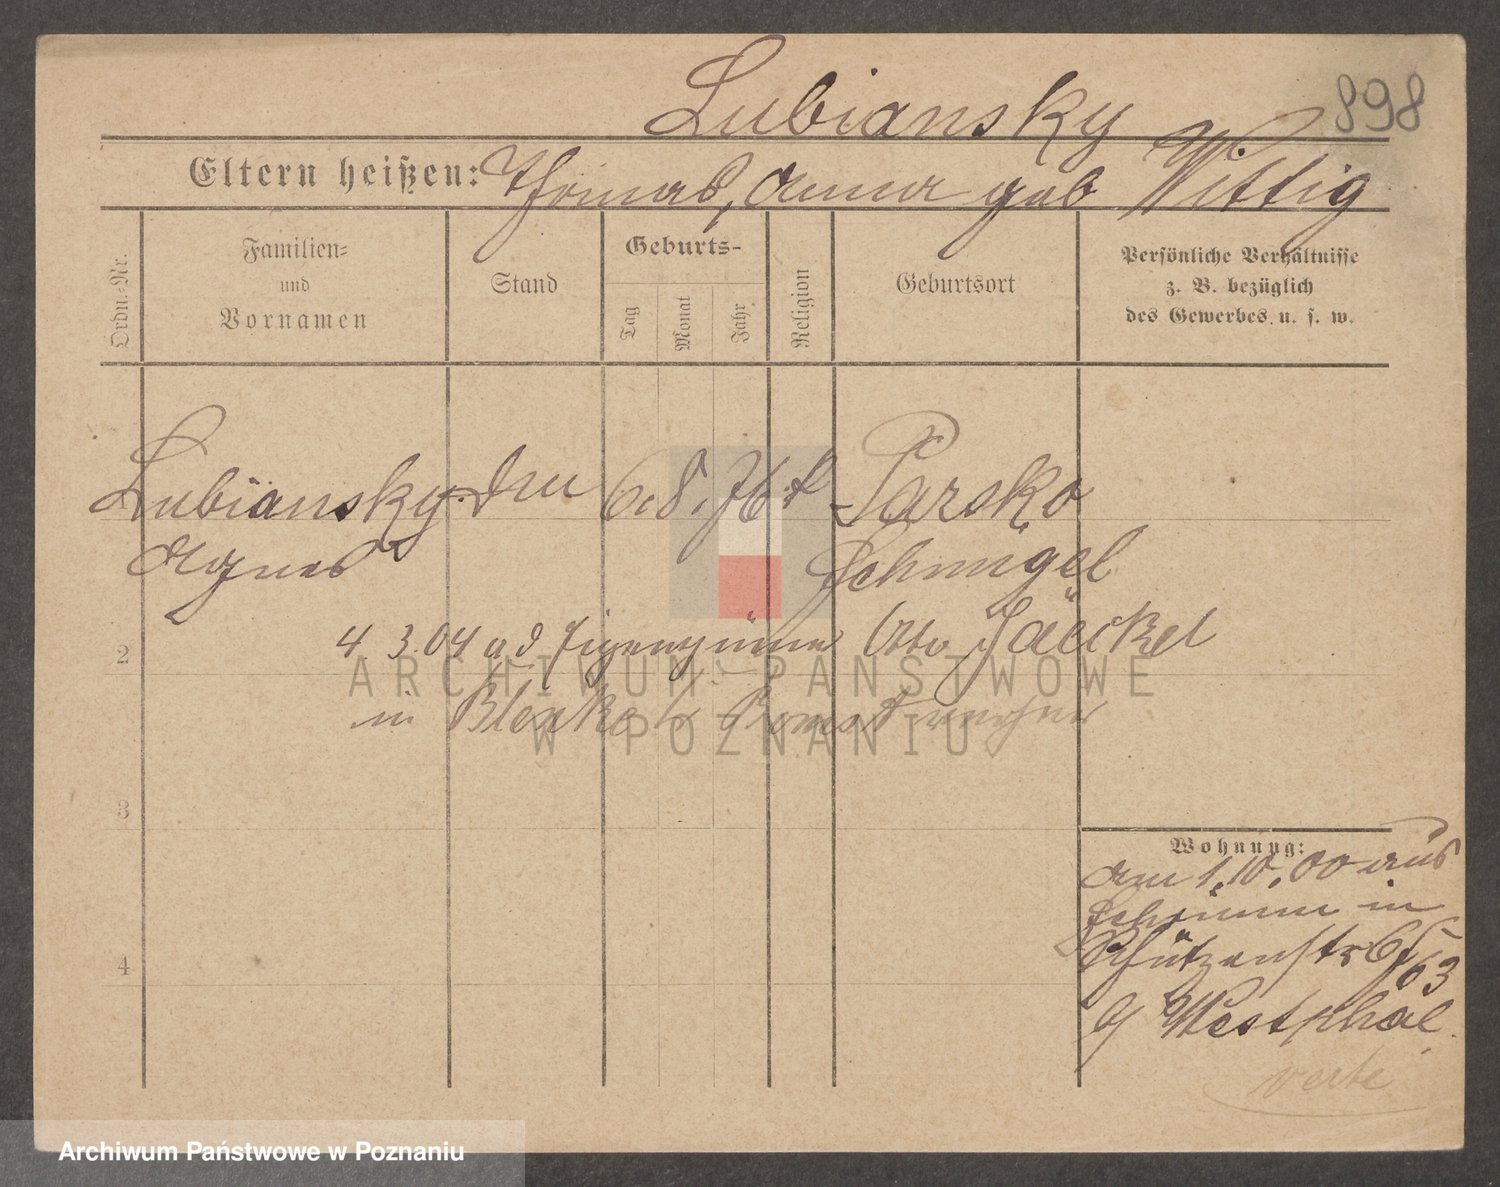 898
Lubiansky
Eltern heißen: Thomas, Anna geb Wittig
Ordn.-Nr.
Familien-
und
Vornamen
Stand
Geburts-
Tag
Monat
Jahr
Religion
Geburtsort
Persönliche Verhältnisse
z. B. bezüglich
des Gewerbes u. s. w.
Lubiansky 6.8.76 Parsko
Agnes Schmigel
2
4.3.04 Eigenthümer Otto Jäeckel
in Bleake b Bomst
3
4
Wohnung:
am 1.10.00 aus
in
Schützenstr
63
Westphal
verte
ARCHIWUM PAŃSTWOWE
W POZNANIU
Archiwum Państwowe w Poznaniu